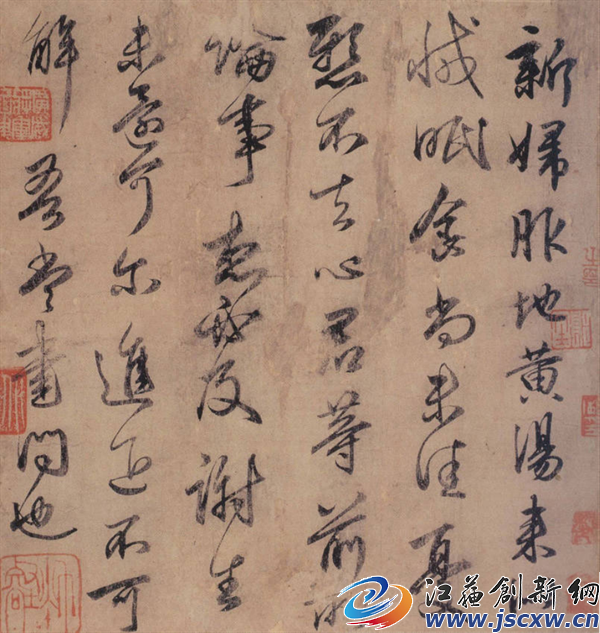 新婦服地黃湯來
減眠食尚未佳憂
懸不去心君等前所
論事想必及謝生
未還可尔進退不可
解吾當書問也
江蘇創新網
www.jscxw.cn